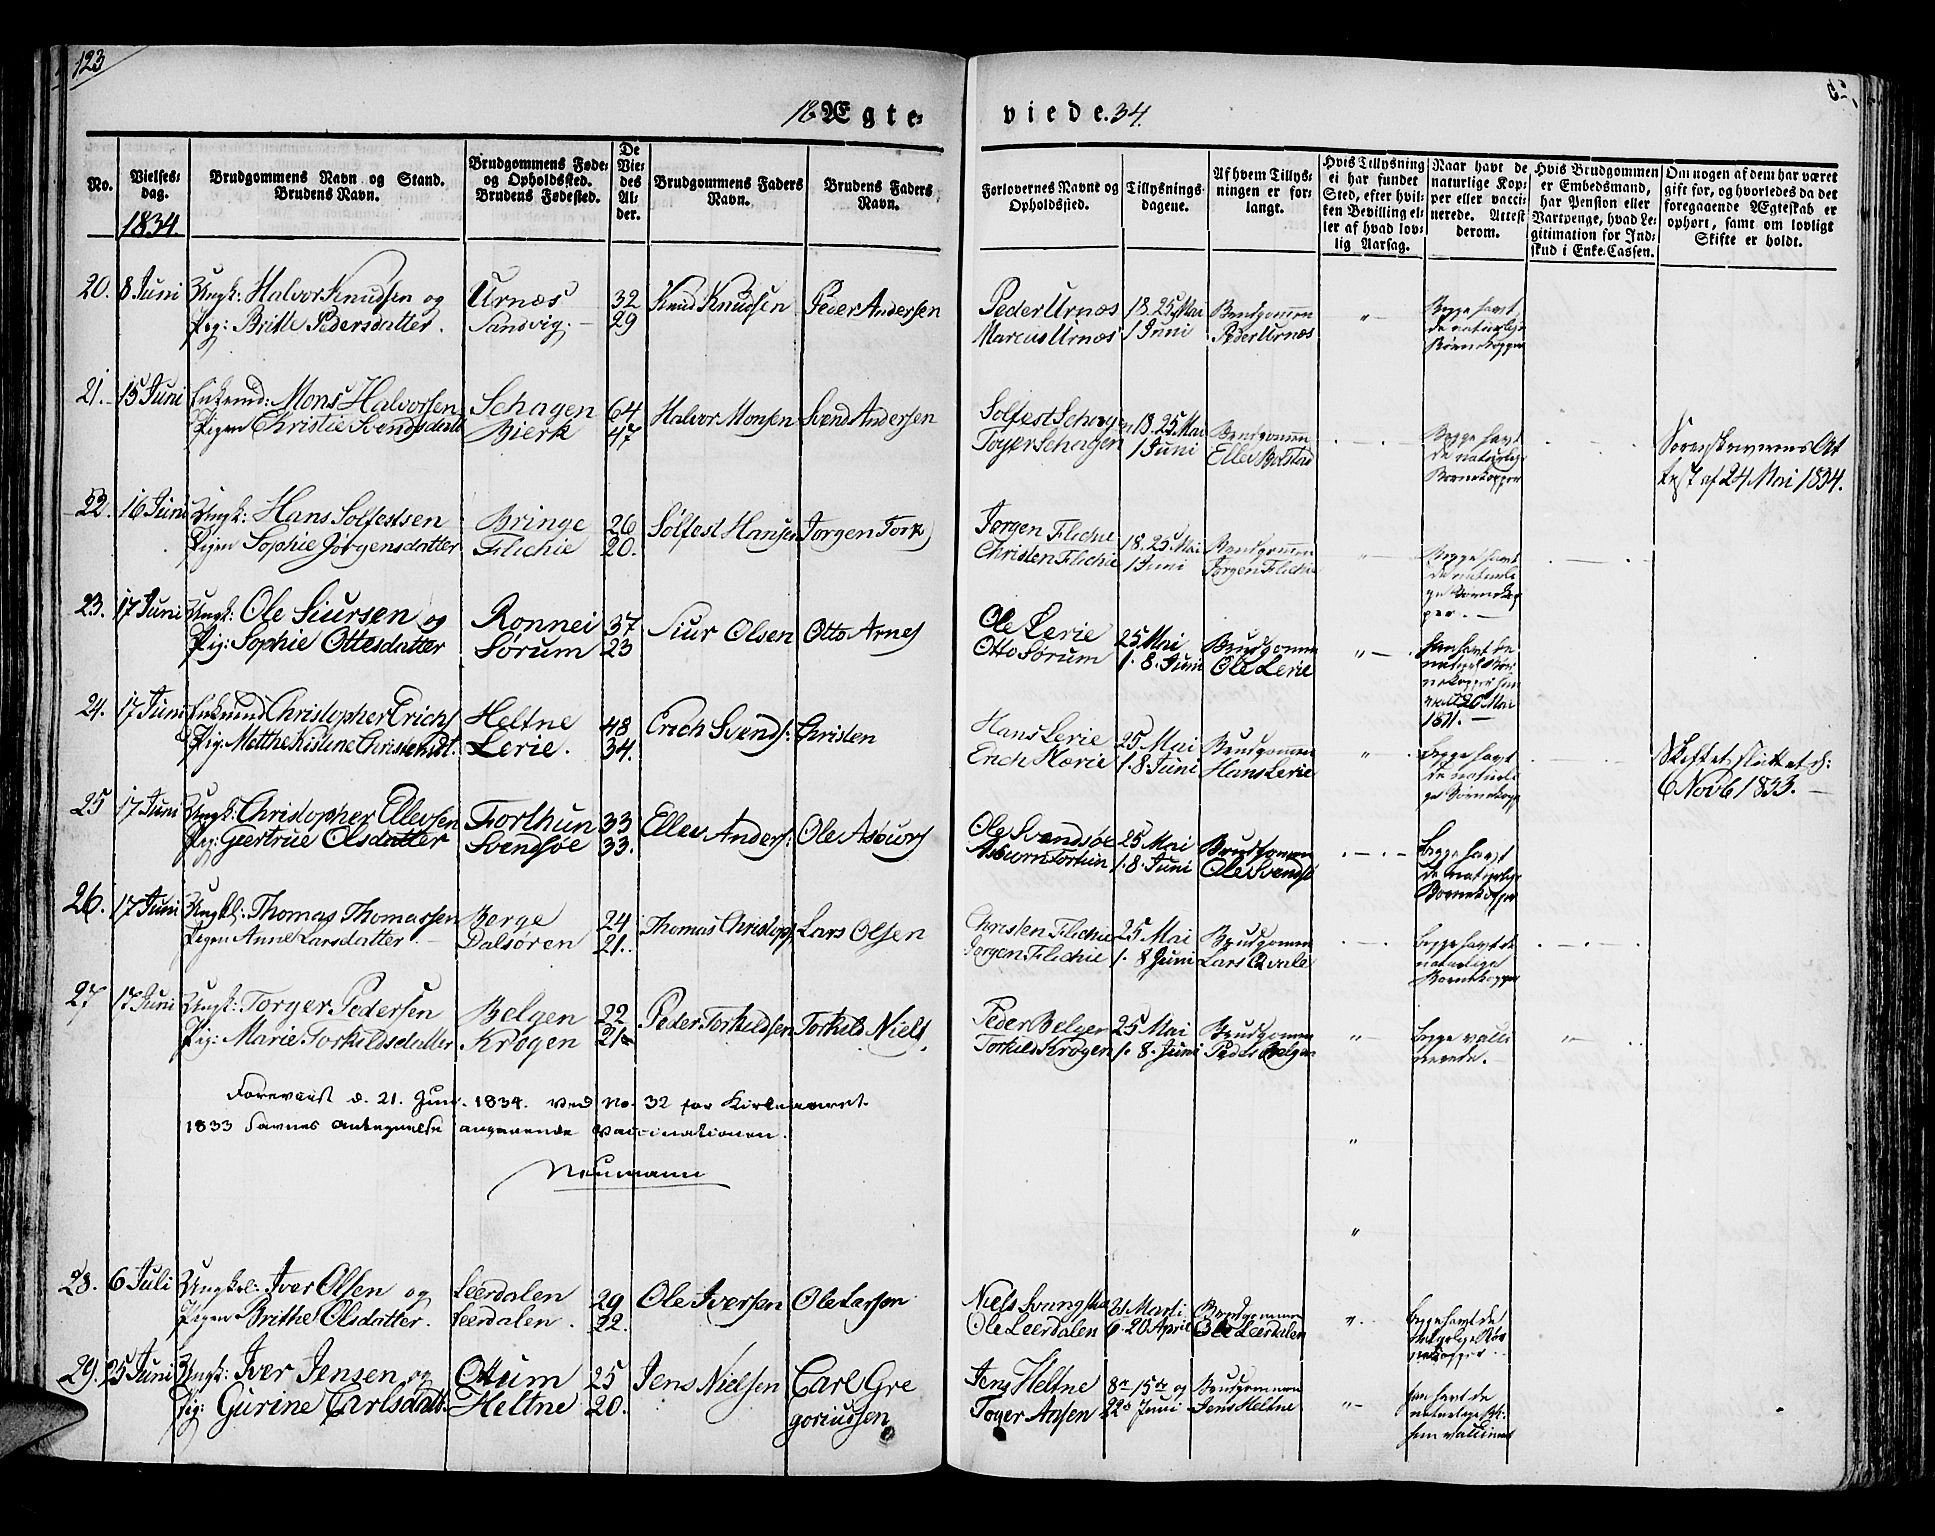 123
18 Ægte- viede. 34.
No.
Vielses-
dag.
1834.
Brudgommens Navn og Stand.
Brudens Navn.
Brudgommens Føde-
og Opholdssted.
Brudens Fødested.
De
Vie-
des
Al-
der.
Brudgommens Faders
Navn.
Brudens Faders
Navn.
Forlovernes Navne og
Opholdssted.
Tillysnings-
dagene.
Af hvem Tillys-
ningen er for-
langt.
Hvis Tillysning
ei har fundet
Sted, efter hvil-
ken Bevilling el-
ler af hvad lov-
lig Aarsag.
Naar havt de
naturlige Kop-
per eller vacci-
nerede. Attest
derom.
Hvis Brudgommen
er Embedsmand,
har Pension eller
Vartpenge, hvad Le-
gitimation for Ind-
skud i Enke-Cassen.
Om nogen af dem har været
gift før, og hvorledes da det
foregaaende Ægteskab er
ophørt, samt om lovligt
Skifte er holdt.
20. 8 Juni Ungk: Halvor Knudsen og Urnæs 32 Knud Knudsen Peder Andersen Peder Urnæs 18. 25. Mai Brudgommen " Begge havt
Pig: Britte Pedersdatter. Sandvig. 29 Marcus Urnæs 1 Juni Peder Urnæs de naturlige
Børnekopper
21. 15 Juni Enkemd: Mons Halvorsen Schagen 64 Halvor Monsen Svend Andersen Solfest Schagen 18. 25 Mai Brudgommen Begge havt Sorenskriverens At
Pigen Christie Svendsdatt Bierk 47 Toger Schagen 1 Juni Ellev Bolstad de naturlige test af 24 Mai 1834.
Børnekopper
22. 16 Juni Ungk: Hans Solfestsen Bringe 26 Solfest Hansen Jørgen Tork Jørgen Flichie 18. 25 Mai Brudgommen " Begge havt
Pigen Sophie Jørgensdatter Flichie 20. Christen Flichie 1 Juni Jørgen Flichie de naturli
ge Børnekop
per.
23. 17 Juni Ungk: Ole Siursen og Ronnei 37 Siur Olsen Otto Arnes Ole Lerie 25 Mai Brudgommen " han havt de
Pig: Sophie Ottesdatter Sørum 23 Otto Sørum 1. 8. Juni Ole Lerie
26 Mai
1811.
24. 17 Juni Enkemd Christopher Erichs Heltne 48 Erich Svends: Christen Hans Lerie 25 Mai Brudgommen " begge havt Skiftet sluttet d:
Pig: Matthe Kistine Christensdt. Lerie. 34. Erich Hærie 1. 8. Juni Hans Lerie de naturli 6 Novb 1833.
ge Børnekopp
25 17 Juni Ungk: Christopher Ellevsen Forthun 33 Ellev Anders: Ole Asours Ole Svendsøe 25 Mai Brudgommen begge havt
Pig: Geertrue Olsdatter Svendsøe 33. Forthun 1. 8. Juni Ole Svendsø de naturlige
Børnekopper
26. 17 Juni Ungkl: Thomas Thomassen Berge 24 Thomas Christoph Lars Olsen Christen Flichie 25 Mai Brudgommen begge havt de
Pigen Anne Larsdatter. Dalsøren 21. Jørgen Flichie 1. 8 Juni Lars Qvale naturlige
Børnekopper
27 17 Juni Ungk: Torger Pedersen Belgen 22 Peder Torkildsen Torkild Niels. Peder Belgen 25 Mai Brudgommen " begge vacci "
Pig: Marie Torkildsdatter Krøgen 21 Torkild Krøgen 1. 8. Juni Peder Belgen nerede.
Foreviist d. 21. Juni. 1834. Ved No. 32 for Kirkeaaret
1833 savnes Antegnelse angaaende Vaccinationen.
Neumann
28. 6 Juli Ungkl: Iver Olsen og Leerdalen 29 Ole Iversen Ole Larsen Niels 31 Marti Brudgommen " begge havt de
Pigen Brithe Olsdatter. Leerdalen. 22. Ole Leerdalen 6. 20 April Ole Leerdalen
29. 25 Juni Ungk: Iver Jensen og Ottum 25 Jens Nielsen Carl Gre Jens Heltne 8de 15de og Brudgommen han havt de
Pig: Gurine Carlsdatt. Heltne 20. goriussen Toger Ansen 22de Juni Jens Heltne " naturlige